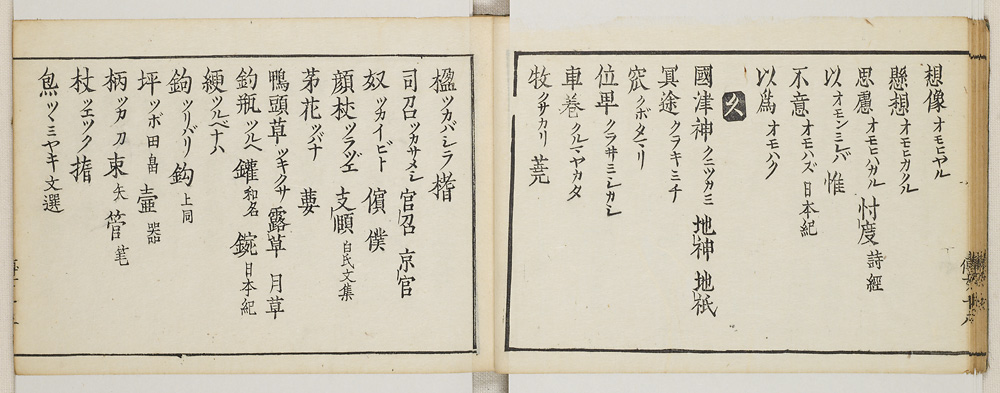 想像 オモヒヤル
懸想 オモヒカクル
思慮 オモヒハカル 忖度 詩經
以 オモンミレバ 惟
不意 オモハズ 日本紀
以爲 オモハク
久
國津神 クニツカミ 地神 地祇
冥途 クラキミチ
窊 クボタマリ
位卑 クラヰミシカシ
車巻 クルマヤカタ
牧 クサカリ 蕘
楹 ツカバシラ 㨗
司召 ツカサメシ 官召 京官
奴 ツカイビト 儐 僕
頰杖 ツラヅエ 支頤 白氏文集
茅花 ツバナ 萋
鴨頭草 ツキクサ 露草 月草
釣瓶 ツルベ 鑵 和名 鋺 日本紀
綆 ツルベナハ
鉤 ツリバリ 鈎 上同
坪 ツボ 田畠 壷 器
柄 ツカ 刀 束 矢 管 笔
杖 ツエツク 㨗
炰 ツヽミヤキ 文選